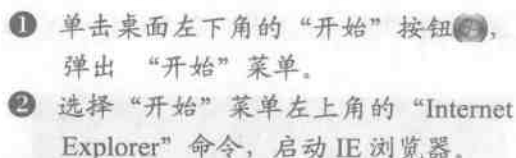 ❶ 单击桌面左下角的“开始”按钮,
弹出 “开始”菜单。
❷ 选择“开始”菜单左上角的“Internet
Explorer”命令，启动 IE 浏览器。